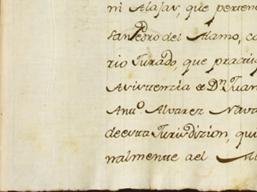 ni Alajar, que perten
San Pedro del Alamo, co
rio Jurado, que practi
Avivencia de Dn Juan
Anto Alvarez Nava
de esta Jurisdizion, qu
nalmente ael